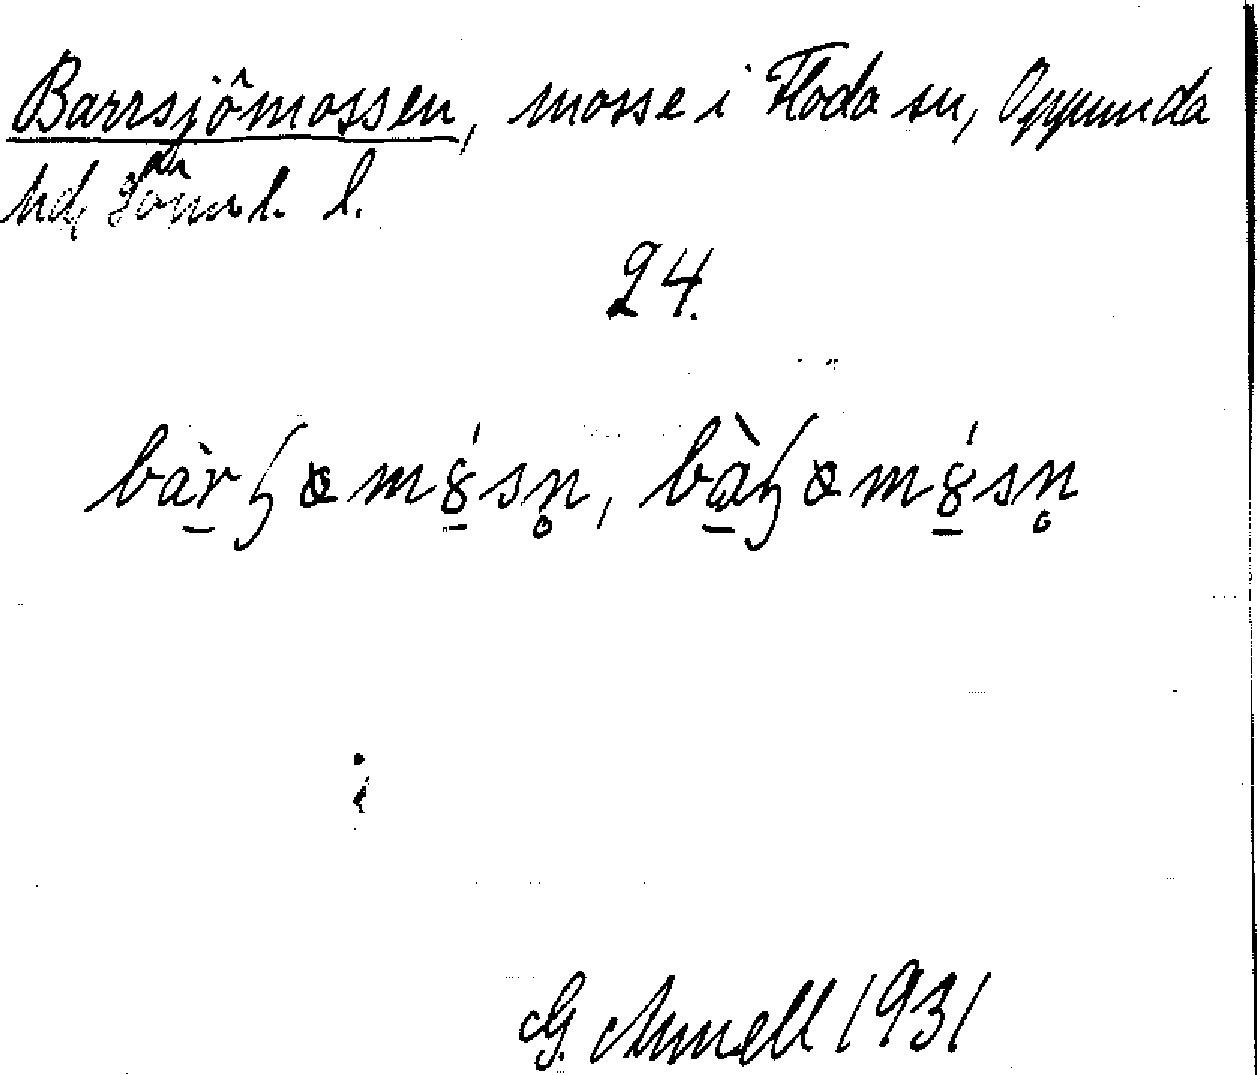 Barrsjömossen, mosse i Floda sn, Oppunda
hd, Sörml. l.
24.
bàrɧømɞ́sn̥, bàɧømɞ́sn̥
G. Armell 1931